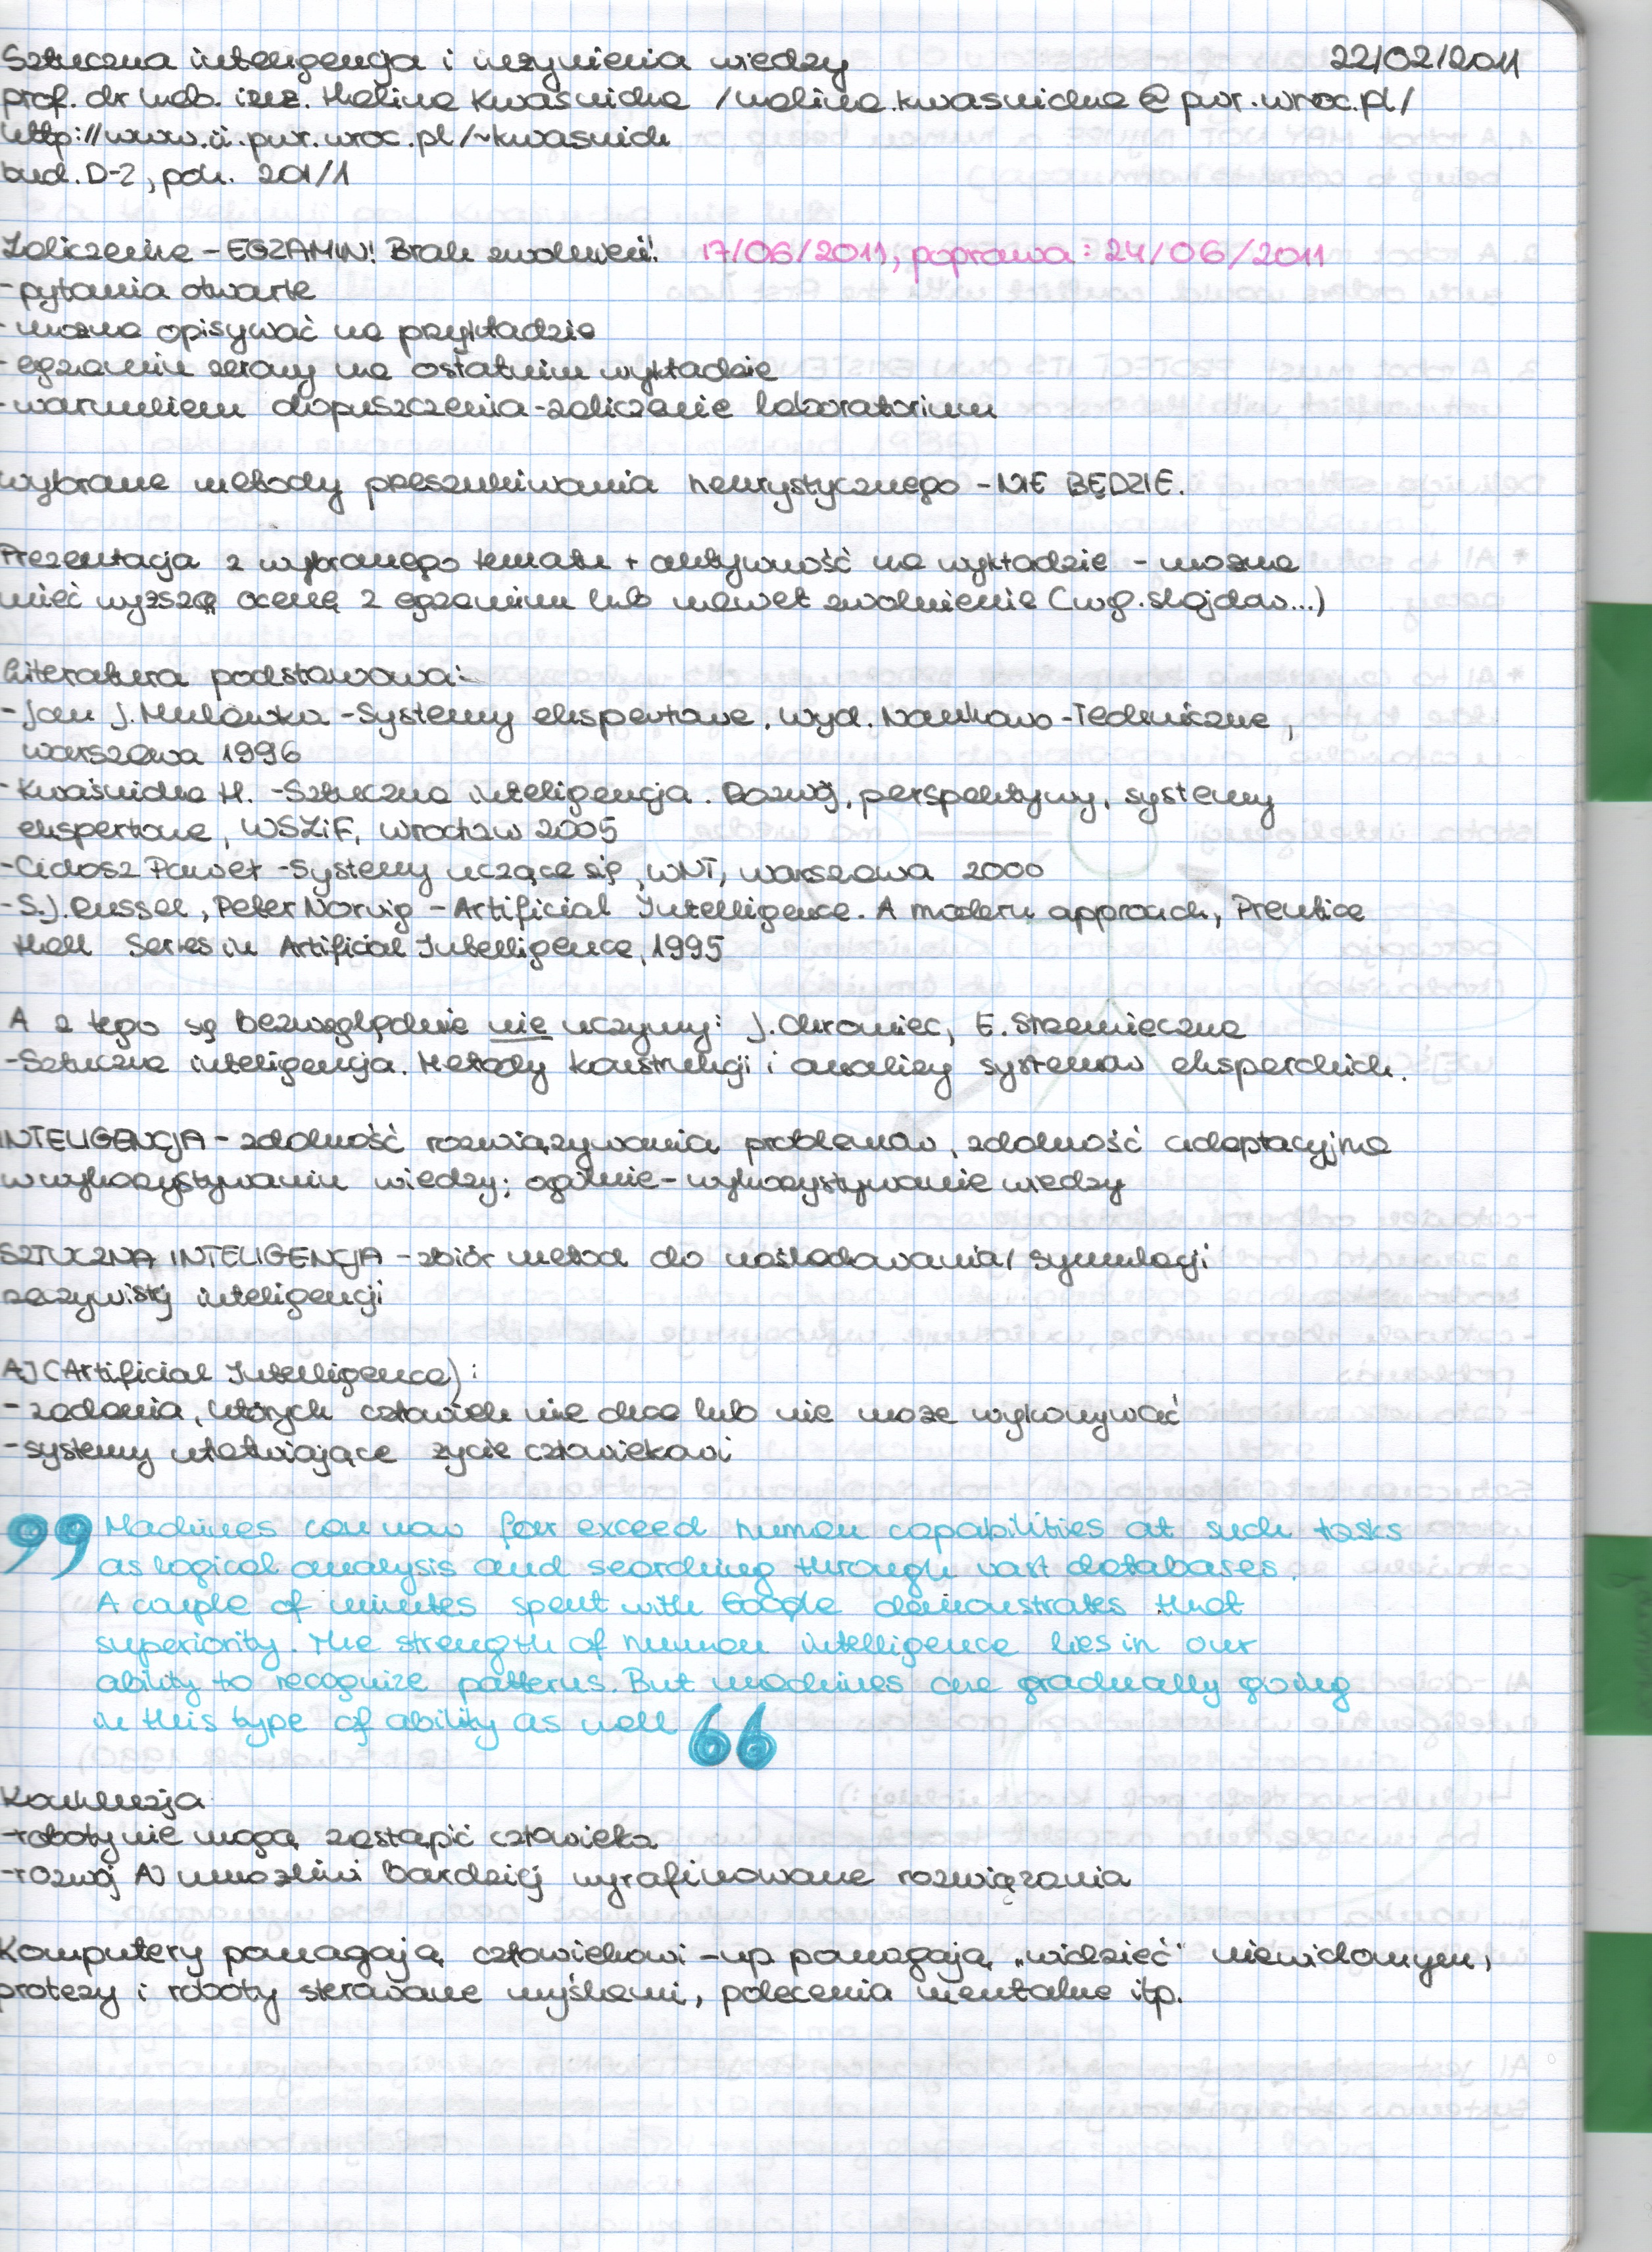 Sztuczna inteligencja i inżynieria wiedzy 22/02/2011
prof. dr hab. inż. Halina Kwaśnicka /halina.kwasnicka@pwr.wroc.pl/
http://www.ii.pwr.wroc.pl/~kwasnick
bud. D-2, pok. 201/1
Zaliczenie - EGZAMIN! Brak zwolnień! 17/06/2011, poprawa: 24/06/2011
- pytania otwarte
- można opisywać na przykładzie
- egzamin zerowy na ostatnim wykładzie
- warunkiem dopuszczenia - zaliczenie laboratorium
Wybrane metody przeszukiwania heurystycznego - NIE BĘDZIE.
Prezentacja z wybranego tematu + aktywność na wykładzie - można
mieć wyższą ocenę z egzaminu lub nawet zwolnienie (wg. slajdów...)
Literatura podstawowa:
- Jan J. Mulawka - Systemy ekspertowe, Wyd. Naukowo-Techniczne,
Warszawa 1996
- Kwaśnicka H. - Sztuczna inteligencja. Rozwój, perspektywy, systemy
ekspertowe, WSZiF, Wrocław 2005
- Cichosz Paweł - Systemy uczące się, WNT, Warszawa 2000
- S.J. Russel, Peter Norvig - Artificial Intelligence. A modern approach, Prentice
Hall Series in Artificial Intelligence, 1995
A z tego się bezwzględnie nie uczymy: J. Chromiec, E. Strzemieczna
- Sztuczna inteligencja. Metody konstrukcji i analizy systemów eksperckich.
INTELIGENCJA - zdolność rozwiązywania problemów, zdolność adaptacyjna
w wykorzystywaniu wiedzy; ogólnie - wykorzystywanie wiedzy
SZTUCZNA INTELIGENCJA - zbiór metod do naśladowania/ symulacji
rzeczywistej inteligencji
AI (Artificial Intelligence):
- zadania, których człowiek nie chce lub nie może wykonywać
- systemy ułatwiające życie człowiekowi
99 Machines can now far exceed human capabilities at such tasks
as logical analysis and searching through vast databases.
A couple of minutes spent with Google demonstrates that
superiority. The strength of human intelligence lies in our
ability to recognize patterns. But machines are gradually going
in this type of ability as well 66
Konkluzja
- roboty nie mogą zastąpić człowieka
- rozwój AI umożliwi bardziej wyrafinowane rozwiązania
Komputery pomagają człowiekowi - np pomagają „widzieć" niewidomym,
protezy i roboty sterowane myślami, polecenia mentalne itp.